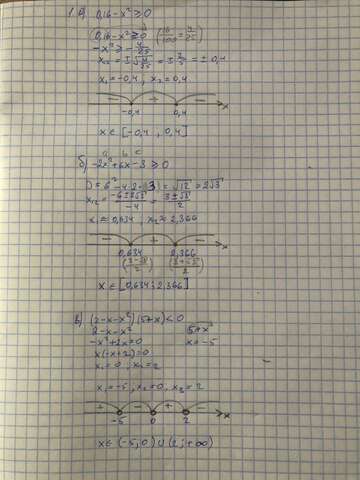 1. а) 0,16 - x² ≥ 0
0,16 - x² ≥ 0 (16/100 = 4/25)
-x² ≥ -4/25
x₁,₂ = ±√4/25 = ±2/5 = ±0,4
x₁ = -0,4; x₂ = 0,4
- + -
-0,4 0,4 x
x ∈ [-0,4, 0,4]
a b c
б) -2x² + 6x - 3 ≥ 0
D = 6² - 4·2·3 = √12 = 2√3
x₁,₂ = -6±2√3/-4 = 3±√3/2
x₁ ≈ 0,634; x₂ ≈ 2,366
- + -
0,634 2,366 x
(3-√3/2) (3+√3/2)
x ∈ [0,634; 2,366]
в) (2-x-x²)(5+x) < 0
2-x-x² 5+x
-x²+2x=0 x=-5
x(-x+2)=0
x₁=0; x₂=2
x₁=-5, x₂=0, x₃=2
+ - + -
-5 0 2 x
x ∈ (-5; 0) ∪ (2; +∞)